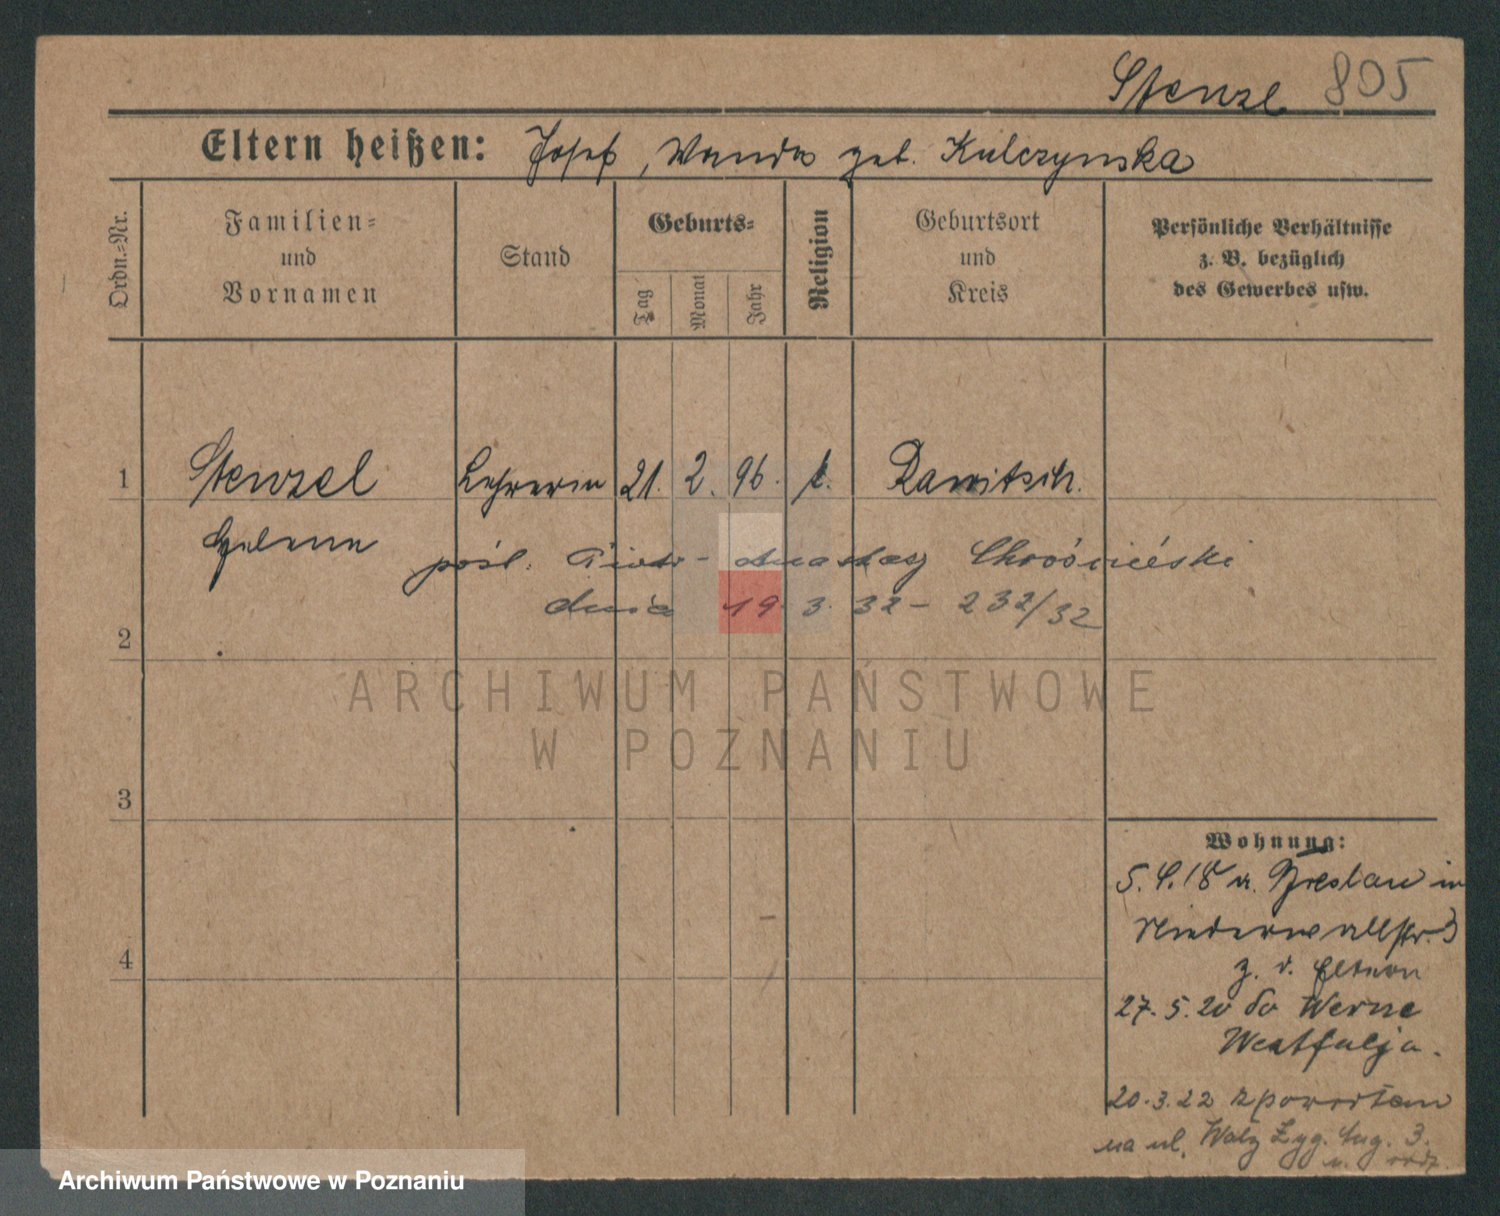 Stenzl 805
Eltern heißen: Josef, Wanda geb. Kulczynska
Ordn.-Nr.
Familien-
und
Vornamen
Stand
Geburts-
Tag
Monat
Jahr
Religion
Geburtsort
und
Kreis
Persönliche Verhältnisse
z. B. bezüglich
des Gewerbes usw.
1 Stenzel Lehrerin 21. 2. 96. k. Rawitsch.
Helene
pośl. Piotr - Anastazy
dnia 19. 3. 32 - 232/32
2
3
4
Wohnung:
5.4.18 n. Breslau in
Niederwallstr. 3
z. d. Eltern
27.5.20 do Werne
Westfalja.
20.3.22 z powrotem
na ul. Wały Zyg. Aug. 3.
ARCHIWUM PAŃSTWOWE
W POZNANIU
Archiwum Państwowe w Poznaniu